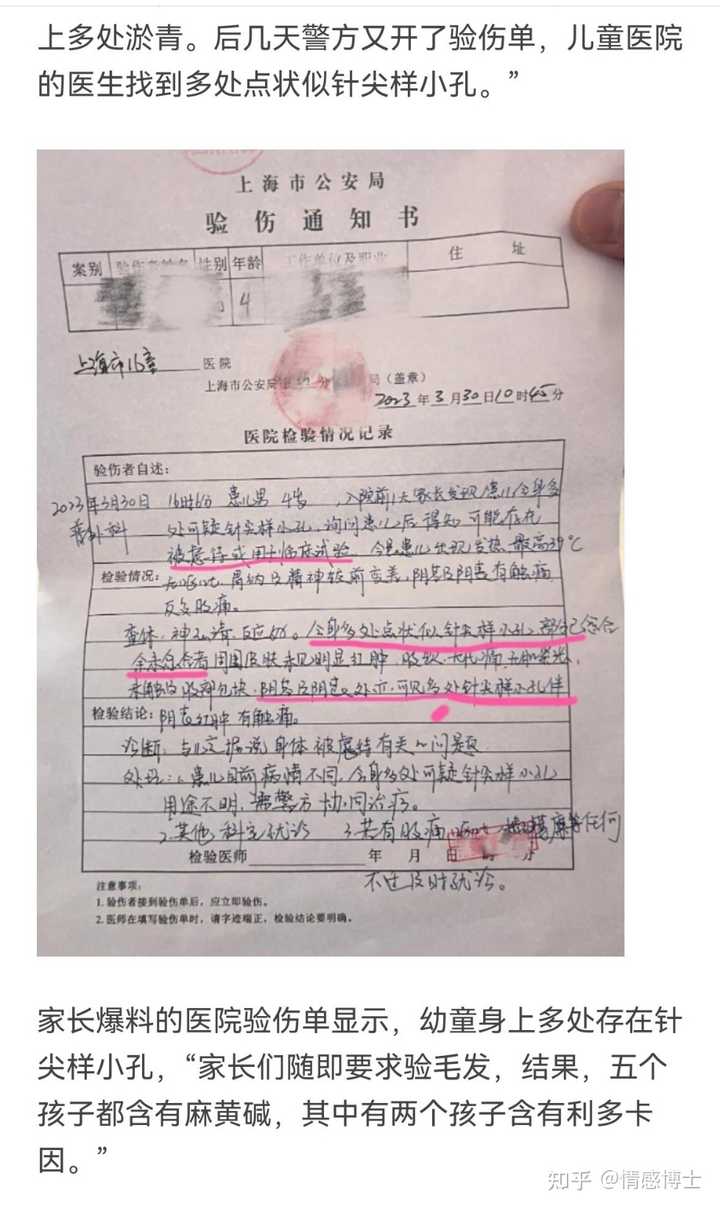 上多处淤青。后几天警方又开了验伤单，儿童医院
的医生找到多处点状似针尖样小孔。”
上海市公安局
验伤通知书
案别 性别 年龄 工作单位及职业 住址
4
上海市儿童 医院
上海市公安局 分局（盖章）
2023年3月30日10时45分
医院检验情况记录
验伤者自述：
2023年3月30日 16时16分 患儿男 4岁，入院前1天家长发现患儿全身多
普外科 处可疑针尖样小孔，询问患儿后得知可能存在
被虐待或用于临床试验，今患儿出现发热，最高39℃
检验情况：无呕吐，胃纳及精神较前变差，阴茎及阴囊有触痛
反复腹痛。
查体：神志清，反应好。全身多处点状似针尖样小孔，部分已愈合
余未愈合者周围皮肤未见明显红肿，腹软，无压痛，
未触及腹部包块，阴茎及阴囊处亦可见多处针尖样小孔伴
检验结论：阴囊红肿有触痛。
诊断：与儿父据说身体被虐待有关的问题
处理：1. 患儿目前病情不同，全身多处可疑针尖样小孔
用途不明，需警方协同治疗。
2.其他科室就诊 3.若有腹痛 等任何
检验医师 年 月 日 时 分
不适及时就诊。
注意事项：
1. 验伤者接到验伤单后，应立即验伤。
2. 医师在填写验伤单时，请字迹端正，检验结论要明确。
家长爆料的医院验伤单显示，幼童身上多处存在针
尖样小孔，“家长们随即要求验毛发，结果，五个
孩子都含有麻黄碱，其中有两个孩子含有利多卡
因。”
知乎 @情感博士